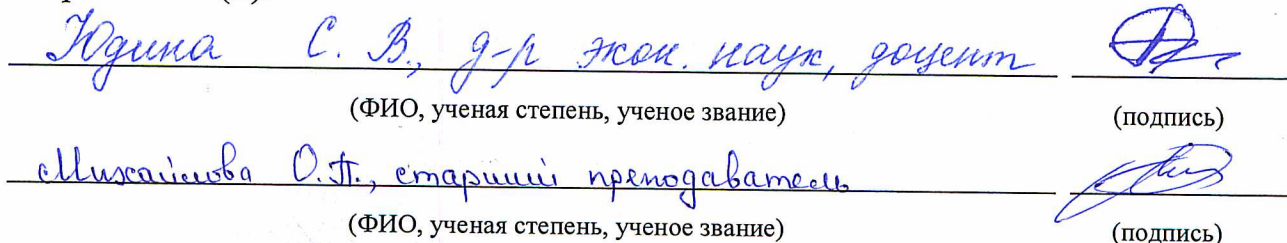 Юдина С. В., д-р экон. наук, доцент
(ФИО, ученая степень, ученое звание) (подпись)
Михайлова О.П., старший преподаватель
(ФИО, ученая степень, ученое звание) (подпись)